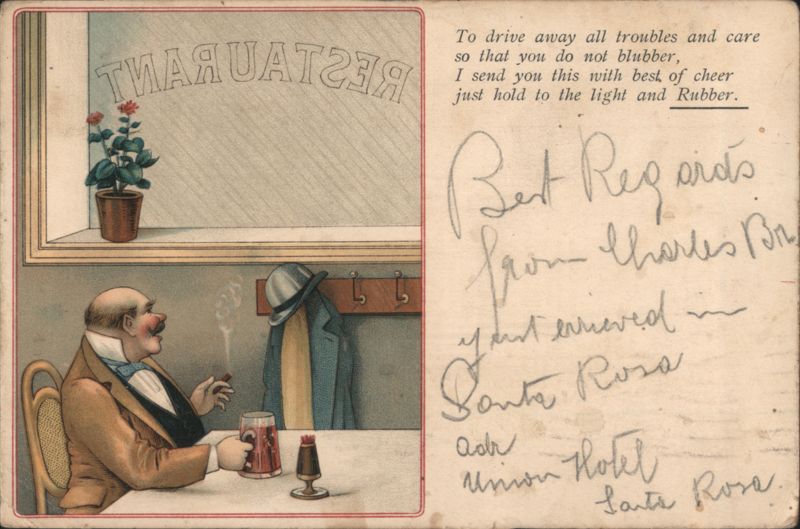 RESTAURANT
To drive away all troubles and care
so that you do not blubber,
I send you this with best of cheer
just hold to the light and Rubber.
Best Regards
from Charles
just errieved in
Santa Rosa
adr
Union Hotel
Santa Rosa